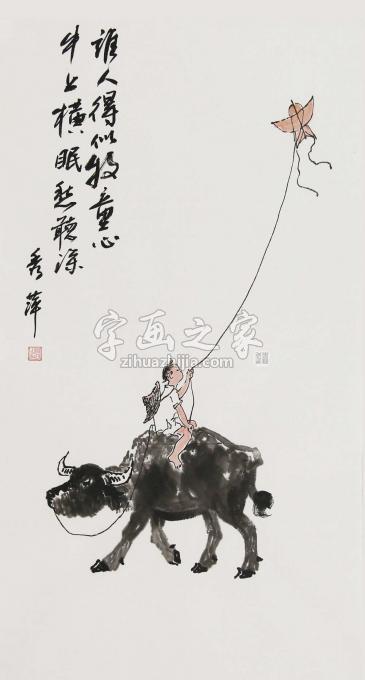 誰人得似牧童心
牛上橫眠愁聽深
秀萍
字画之家
zihuazhijia.com